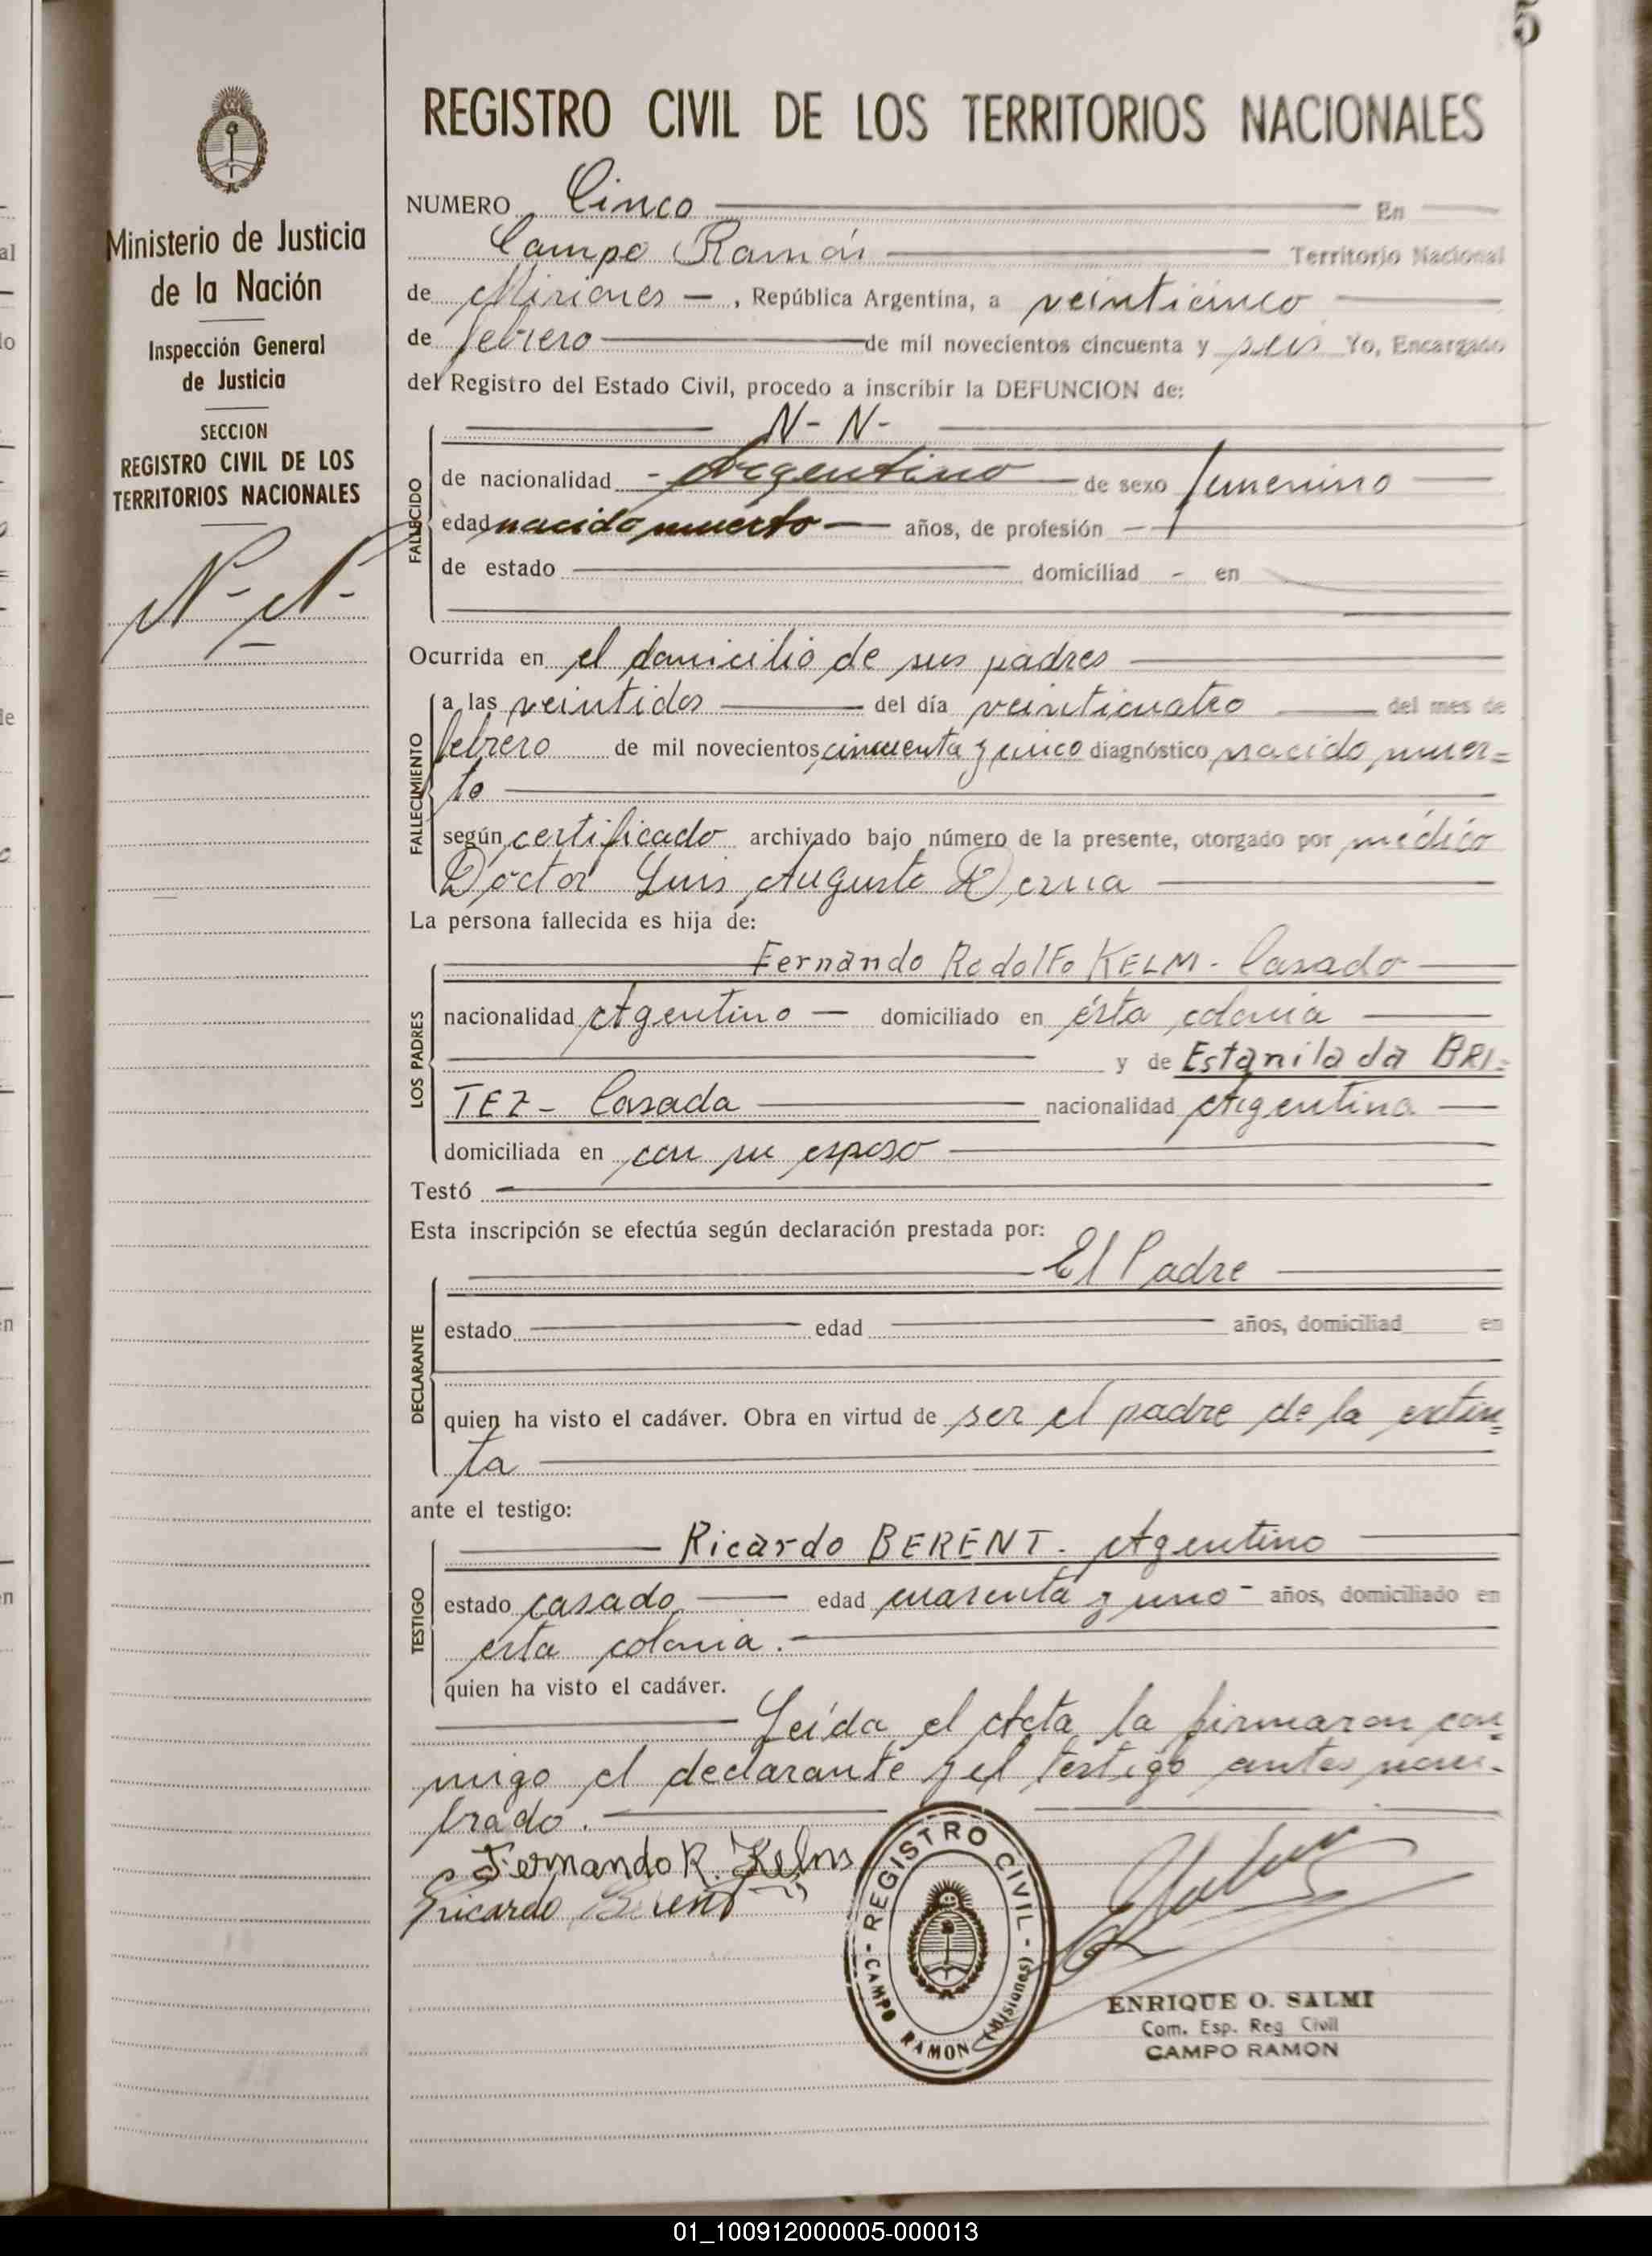 5
REGISTRO CIVIL DE LOS TERRITORIOS NACIONALES
Ministerio de Justicia
de la Nación
Inspección General
de Justicia
SECCION
REGISTRO CIVIL DE LOS
TERRITORIOS NACIONALES
N- N-
NUMERO Cinco En
Campo Ramón Territorio Nacional
de Misiones - , República Argentina, a veinticinco
de febrero de mil novecientos cincuenta y seis Yo, Encargado
del Registro del Estado Civil, procedo a inscribir la DEFUNCION de:
N- N-
FALLECIDO
de nacionalidad - Argentino de sexo femenino
edad nacido muerto años, de profesión
de estado domiciliad - en
Ocurrida en el domicilio de sus padres
FALLECIMIENTO
a las veintidos del día veinticuatro del mes de
febrero de mil novecientos cincuenta y cinco diagnóstico nacido muer=
to
según certificado archivado bajo número de la presente, otorgado por médico
Doctor Luis Augusto
La persona fallecida es hija de:
LOS PADRES
Fernando Rodolfo KELM - Casado
nacionalidad Agentino domiciliado en ésta colonia
y de Estanilada BRI=
TEZ - Casada nacionalidad Argentina
domiciliada en con su esposo
Testó
Esta inscripción se efectúa según declaración prestada por:
El Padre
DECLARANTE
estado edad años, domiciliad en
quien ha visto el cadáver. Obra en virtud de ser el padre de la extin=
ta
ante el testigo:
TESTIGO
Ricardo BERENT - Agentino
estado casado edad cuarenta y uno - años, domiciliado en
esta colonia.
quien ha visto el cadáver.
Leída el Acta la firmaron con=
migo el declarante y el testigo antes nom-
brado.
Fernando R. Kelm
Ricardo Berent
- REGISTRO CIVIL -
CAMPO RAMON (Misiones)
ENRIQUE O. SALMI
Com. Esp. Reg Civil
CAMPO RAMON
01_100912000005-000013